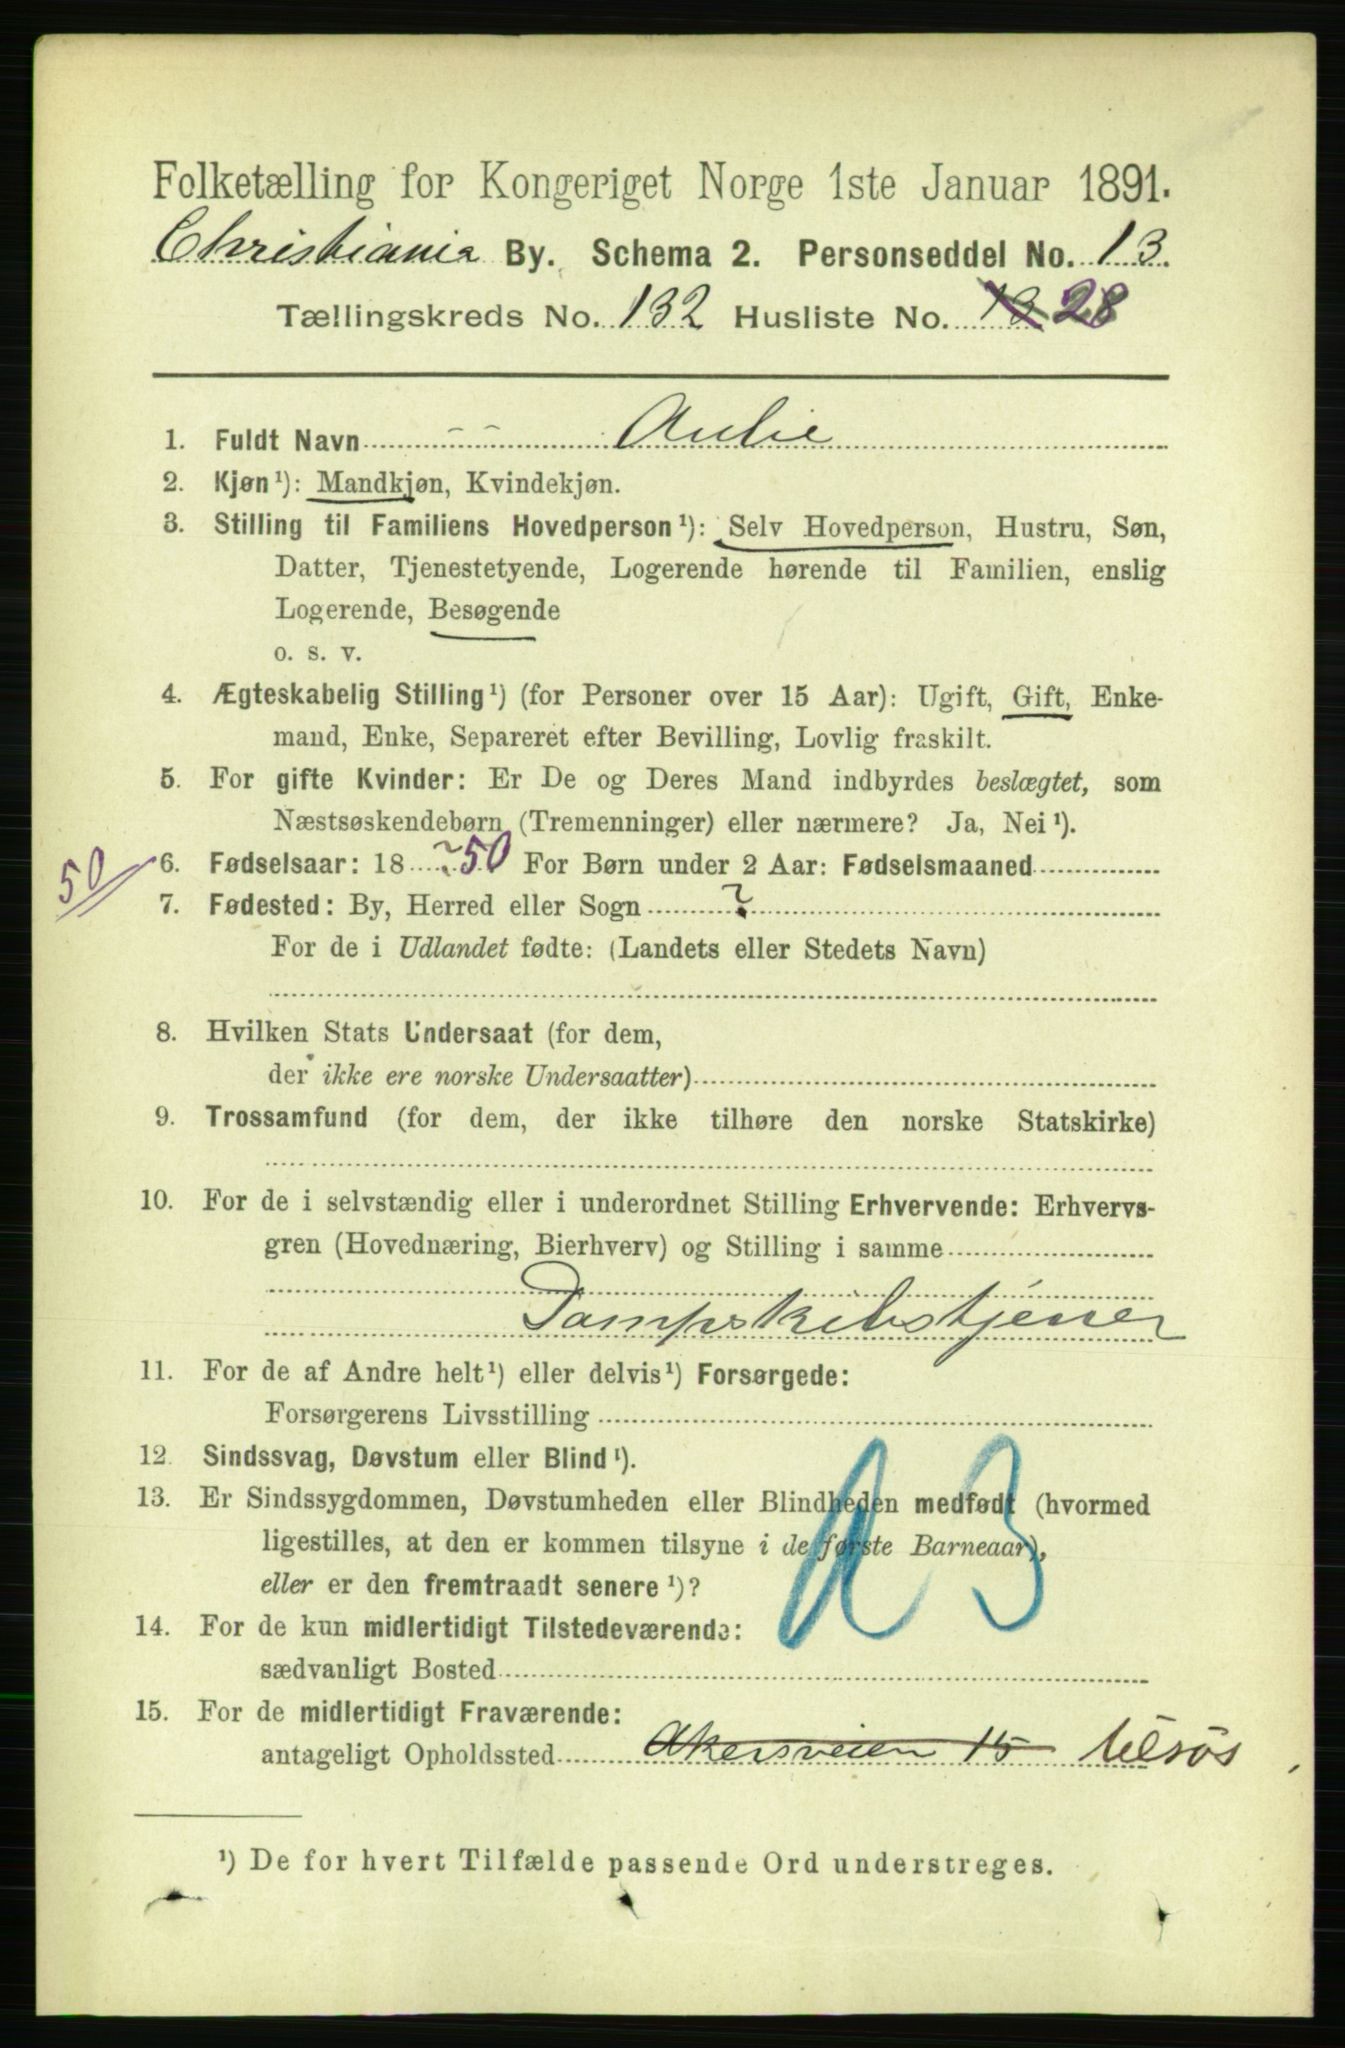 Folketælling for Kongeriget Norge 1ste Januar 1891.
Christiania By. Schema 2. Personseddel No. 13.
Tællingskreds No. 132 Husliste No. 13 28
1. Fuldt Navn - - Aulie
2. Kjøn ¹): Mandkjøn, Kvindekjøn.
3. Stilling til Familiens Hovedperson ¹): Selv Hovedperson, Hustru, Søn,
Datter, Tjenestetyende, Logerende hørende til Familien, enslig
Logerende, Besøgende
o. s. v.
4. Ægteskabelig Stilling ¹) (for Personer over 15 Aar): Ugift, Gift, Enke-
mand, Enke, Separeret efter Bevilling, Lovlig fraskilt.
5. For gifte Kvinder: Er De og Deres Mand indbyrdes beslægtet, som
Næstsøskendebørn (Tremenninger) eller nærmere? Ja, Nei ¹).
50 6. Fødselsaar: 18 ? 50 For Børn under 2 Aar: Fødselsmaaned
7. Fødested: By, Herred eller Sogn ?
For de i Udlandet fødte: (Landets eller Stedets Navn)
8. Hvilken Stats Undersaat (for dem,
der ikke ere norske Undersaatter)
9. Trossamfund (for dem, der ikke tilhøre den norske Statskirke)
10. For de i selvstændig eller i underordnet Stilling Erhvervende: Erhvervs-
gren (Hovednæring, Bierhverv) og Stilling i samme
Dampskibstjener
11. For de af Andre helt ¹) eller delvis ¹) Forsørgede:
Forsørgerens Livsstilling
12. Sindssvag, Døvstum eller Blind ¹).
13. Er Sindssygdommen, Døvstumheden eller Blindheden medfødt (hvormed
ligestilles, at den er kommen tilsyne i de første Barneaar),
eller er den fremtraadt senere ¹)?
14. For de kun midlertidigt Tilstedeværende:
sædvanligt Bosted
15. For de midlertidigt Fraværende:
antageligt Opholdssted Akersveien 15 tilsøs
¹) De for hvert Tilfælde passende Ord understreges.